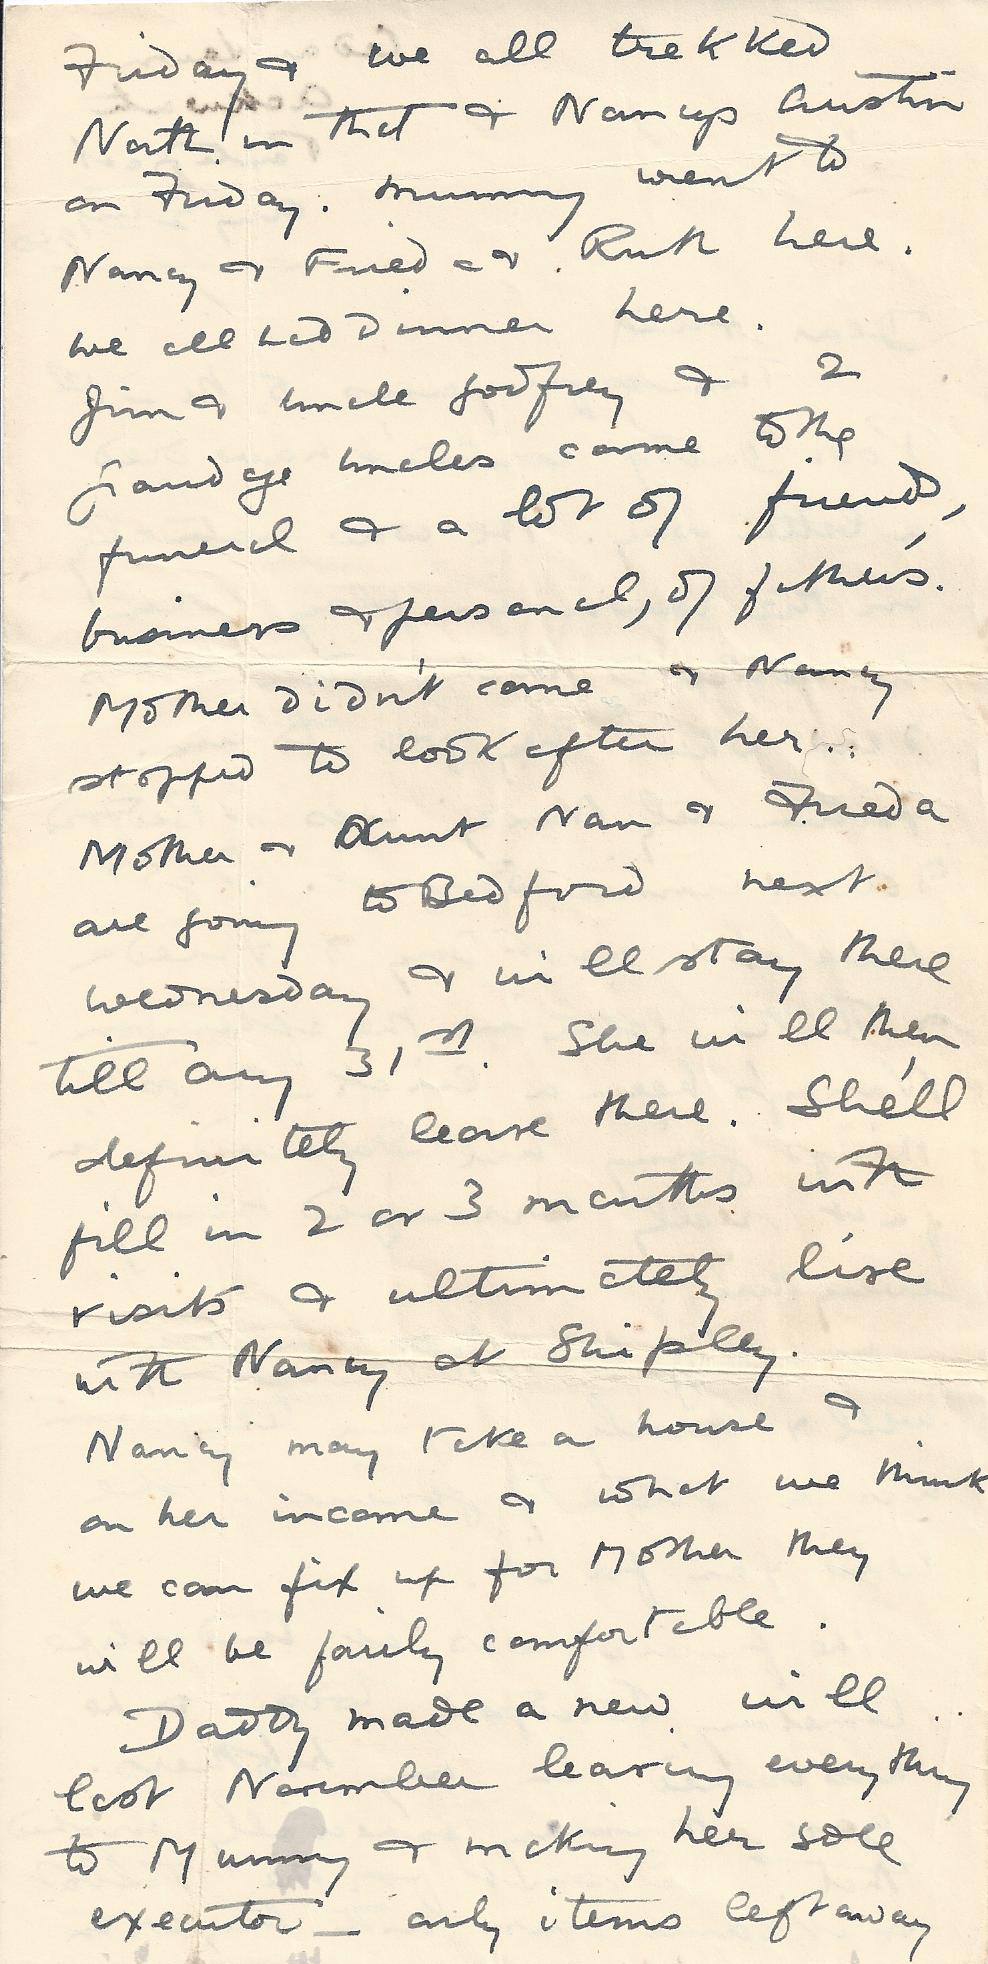 Friday & we all trekked
North in that & Nancys Austin
on Friday. Mummy went to
Nancy & Frieda & Ruth here.
we all had Dinner here.
Jim & uncle Godfrey & 2
uncles came to the
funeral & a lot of friends,
business & personal, of father's.
Mother didn't come & Nancy
stopped to look after her.
Mother & Aunt Nan & Frieda
are going to Bedford next
wednesday & will stay there
till Aug 31st. She will then
definitely leave there. She'll
fill in 2 or 3 months with
visits & ultimately live
with Nancy at Shipley.
Nancy may take a house &
on her income & what we think
we can fix up for Mother they
will be fairly comfortable.
Daddy made a new will
last November leaving everything
to Mummy & making her sole
executor — only items left away